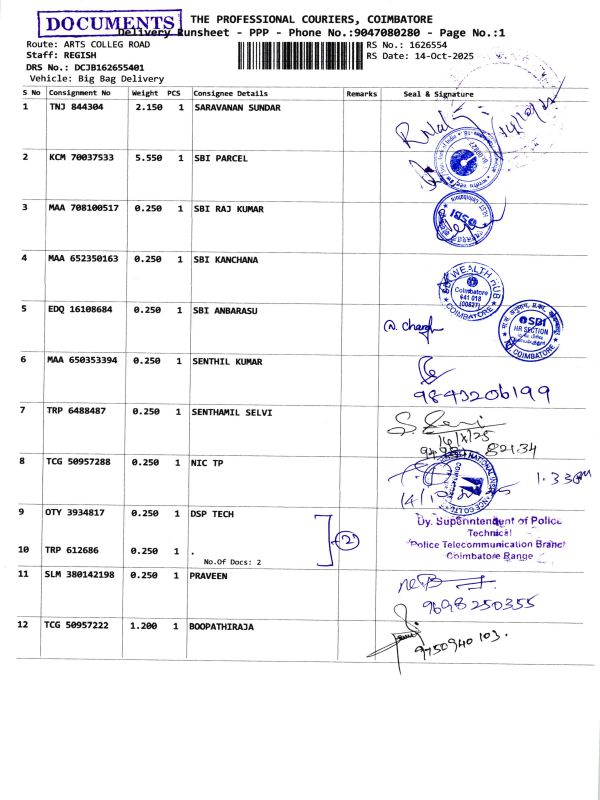 DOCUMENTS
THE PROFESSIONAL COURIERS, COIMBATORE
Delivery Runsheet - PPP - Phone No.:9047080280 - Page No.:1
Route: ARTS COLLEG ROAD
RS No.: 1626554
Staff: REGISH
RS Date: 14-Oct-2025
DRS No.: DCJB162655401
Vehicle: Big Bag Delivery
S No Consignment No Weight PCS Consignee Details Remarks Seal & Signature
1 TNJ 844304 2.150 1 SARAVANAN SUNDAR
2 KCM 70037533 5.550 1 SBI PARCEL
3 MAA 708100517 0.250 1 SBI RAJ KUMAR
SBI
4 MAA 652350163 0.250 1 SBI KANCHANA
WEALTH HUB
Coimbatore
641 018
COIMBATORE
5 EDQ 16108684 0.250 1 SBI ANBARASU
SBI
HR SECTION
COIMBATORE
6 MAA 650353394 0.250 1 SENTHIL KUMAR
9843206199
7 TRP 6488487 0.250 1 SENTHAMIL SELVI
14/X/25
8 TCG 50957288 0.250 1 NIC TP
1.33 PM
9 OTY 3934817 0.250 1 DSP TECH
Dy. Superintendent of Police
Technical
Police Telecommunication Branch
Coimbatore Range
2
10 TRP 612686 0.250 1 .
No.Of Docs: 2
11 SLM 380142198 0.250 1 PRAVEEN
9698250355
12 TCG 50957222 1.200 1 BOOPATHIRAJA
9750940103.